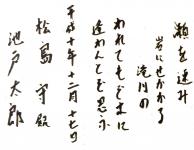 瀬を速み
岩にせかかる
滝川の
われてもすえに
逢わんとぞ思ふ
平成十年十二月十七日
松島守殿
池戸太郎